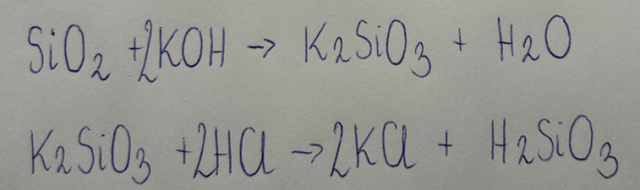 SiO2 + 2KOH → K2SiO3 + H2O
K2SiO3 + 2HCl → 2KCl + H2SiO3